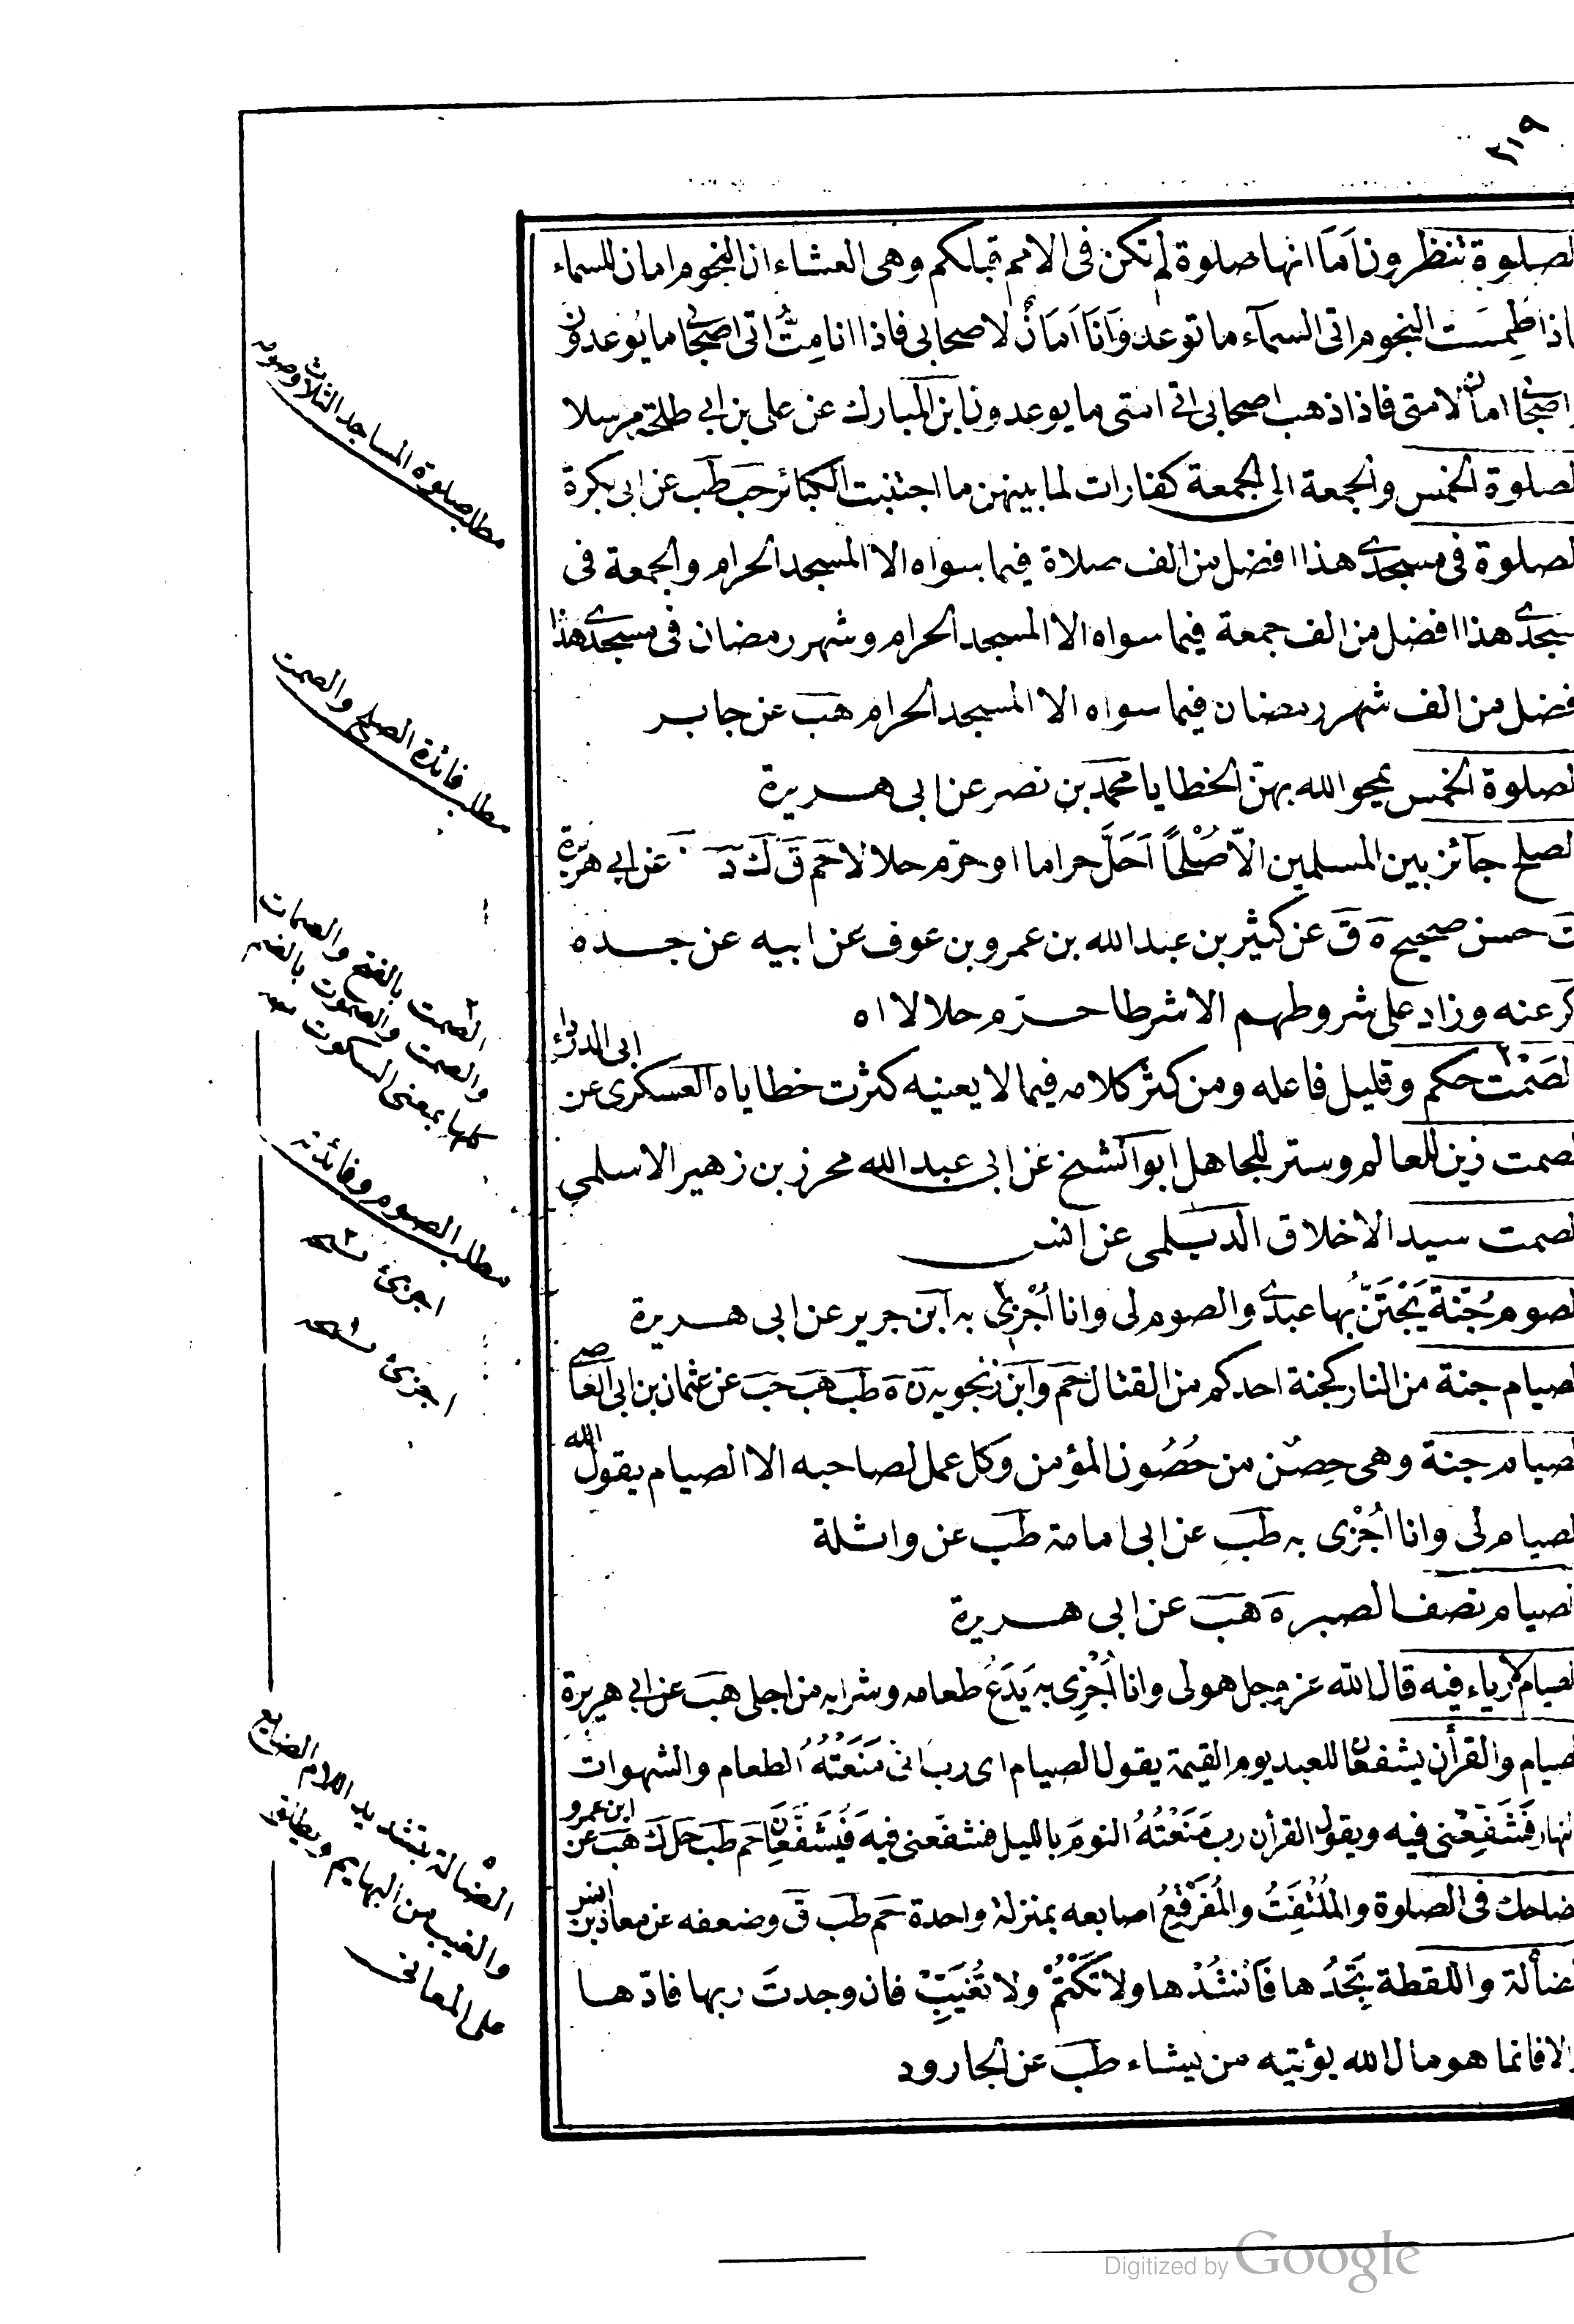 ٣١٩
لصلوة تنظرون اَمَا انها صلوة لم تكن فى الامم قبلكم وهى العشاء ان النجوم امان للسماء
اذا طُمِسَت النجوم اتى السمآء ما توعد وَاَنَا اَمَانٌ لاصحابى فاذا انا مِتُّ اتى اصحابى ما يُوعدون
واصحابى امان لامتى فاذا ذهب اصحابى اتى امتى ما يوعدون ابن المبارك عن على بن ابى طلحة مرسلا
لصلوة الخمس والجمعة الى الجمعة كفارات لما بينهن ما اجتنبت الكبائر حب طب عن ابى بكرة
لصلوة فى مسجدى هذا افضل من الف صلاة فيما سواه الا المسجد الحرام والجمعة فى
سجدى هذا افضل من الف جمعة فيما سواه الا المسجد الحرام وشهر رمضان فى مسجدى هذا
فضل من الف شهر رمضان فيما سواه الا المسجد الحرام هب عن جابر
لصلوة الخمس يمحو الله بهن الخطايا محمد بن نصر عن ابى هريرة
لصلح جآئز بين المسلمين الّا صُلْحًا اَحَلَّ حراما او حرّم حلالا حم ق ك د عن ابى هريرة
ت حسن صحيح ه ق عن كثير بن عبد الله بن عمرو بن عوف عن ابيه عن جده
كر عنه وزاد على شروطهم الا شرطا حرّم حلالا اه
لصَمْت حكم وقليل فاعله ومن كثر كلامه فيما لا يعنيه كثرت خطاياه العسكرى عن ابى الدرداء
لصمت زين للعالم وستر للجاهل ابو الشيخ عن ابى عبد الله محرز بن زهير الاسلمى
لصمت سيد الاخلاق الديلمى عن انس
لصوم جُنّة يَجْتَنّ بها عبدى والصوم لى وانا اُجْزِى به ابن جرير عن ابى هريرة
لصيام جنة من النار كجنة احدكم من القتال حم وابن زنجويه ن ه طب هب حب عن عثمان بن ابى العاصى
لصيام جنة وهى حِصْن من حُصُون المؤمن وكل عمل لصاحبه الا الصيام يقول الله
لصيام لى وانا اُجْزى به طب عن ابى امامة طب عن واثلة
لصيام نصف الصبر ه هب عن ابى هريرة
لصيام لا رياء فيه قال الله عز وجل هو لى وانا اُجْزِى به يَدَعُ طعامه وشرابه من اجلى هب عن ابى هريرة
صيام والقرأن يشفعان للعبد يوم القيمة يقول الصيام اى رب انى مَنَعْتُهُ الطعام والشهوات
نهار فَشَفِّعْنى فيه ويقول القرأن رب مَنَعْتُهُ النومَ بالليل فشفعنى فيه فَيُشَفَّعَان حم طب حل ك هب عن ابن عمرو
ضاحك فى الصلوة والمُلْتَفِتُ والمُفَرْقِعُ اصابعه بمنزلة واحدة حم طب ق وضعفه عن معاذ بن انس
ضألة واللقطة تَجِدُها فَاَنْشُدْها ولا تَكْتُمْ ولا تُغَيِّبْ فان وجدتَ ربها فادّها
الا فانما هو مال الله يؤتيه من يشاء طب عن الجارود
مطلب صلوة المساجد الثلاث وصومه
مطلب فائدة الصلح والصمت
الصمت بالفتح والصمات
والصمت والصموت بالضم
كلها بمعنى السكوت
مطلب الصوم وفائدته
اجزئ نسخه
اجزئ نسخه
الضالة بتشديد اللام الضايع
والغيب من البهايم ويطلق
على المعانى
Digitized by Google